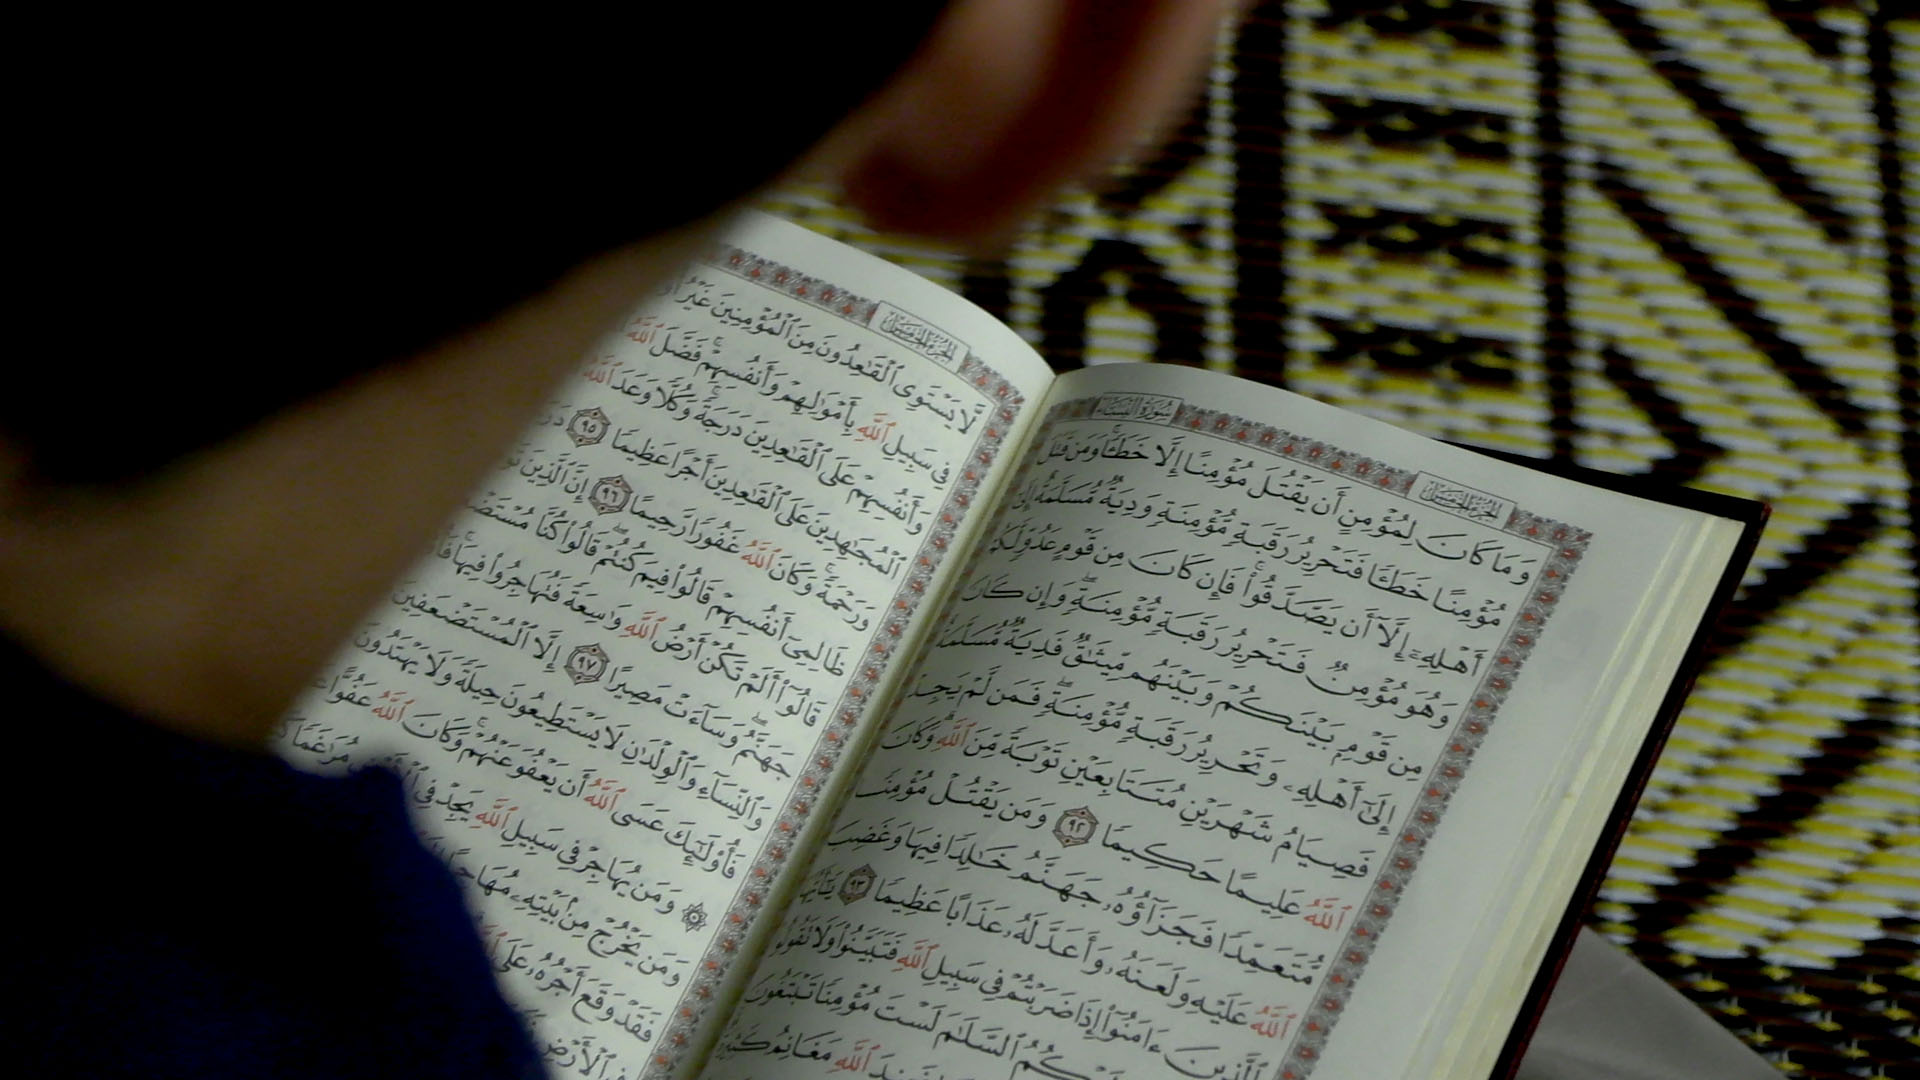 سُورَةُ النِّسَاءِ
الجُزْءُ الخَامِسُ
وَمَا كَانَ لِمُؤْمِنٍ أَن يَقْتُلَ مُؤْمِنًا إِلَّا خَطَـًٔا وَمَن قَتَلَ
مُؤْمِنًا خَطَـًٔا فَتَحْرِيرُ رَقَبَةٍ مُّؤْمِنَةٍ وَدِيَةٌ مُّسَلَّمَةٌ إِلَىٰٓ
أَهْلِهِۦٓ إِلَّآ أَن يَصَّدَّقُوا۟ فَإِن كَانَ مِن قَوْمٍ عَدُوٍّ لَّكُمْ
وَهُوَ مُؤْمِنٌ فَتَحْرِيرُ رَقَبَةٍ مُّؤْمِنَةٍ وَإِن كَانَ
مِن قَوْمٍۭ بَيْنَكُمْ وَبَيْنَهُم مِّيثَـٰقٌ فَدِيَةٌ مُّسَلَّمَةٌ
إِلَىٰٓ أَهْلِهِۦ وَتَحْرِيرُ رَقَبَةٍ مُّؤْمِنَةٍ فَمَن لَّمْ يَجِدْ
فَصِيَامُ شَهْرَيْنِ مُتَتَابِعَيْنِ تَوْبَةً مِّنَ ٱللَّهِ وَكَانَ
ٱللَّهُ عَلِيمًا حَكِيمًا ٩٢ وَمَن يَقْتُلْ مُؤْمِنًا
مُّتَعَمِّدًا فَجَزَآؤُهُۥ جَهَنَّمُ خَـٰلِدًا فِيهَا وَغَضِبَ
ٱللَّهُ عَلَيْهِ وَلَعَنَهُۥ وَأَعَدَّ لَهُۥ عَذَابًا عَظِيمًا ٩٣ يَـٰٓأَيُّهَا
ٱلَّذِينَ ءَامَنُوٓا۟ إِذَا ضَرَبْتُمْ فِى سَبِيلِ ٱللَّهِ فَتَبَيَّنُوا۟ وَلَا تَقُولُوا۟
ٱلسَّلَـٰمَ لَسْتَ مُؤْمِنًا تَبْتَغُونَ
ٱللَّهِ مَغَانِمُ كَثِيرَةٌ
الجُزْءُ الخَامِسُ
لَّا يَسْتَوِى ٱلْقَـٰعِدُونَ مِنَ ٱلْمُؤْمِنِينَ غَيْرُ
فِى سَبِيلِ ٱللَّهِ بِأَمْوَٰلِهِمْ وَأَنفُسِهِمْ فَضَّلَ ٱللَّهُ
وَأَنفُسِهِمْ عَلَى ٱلْقَـٰعِدِينَ دَرَجَةً وَكُلًّا وَعَدَ ٱللَّهُ
ٱلْمُجَـٰهِدِينَ عَلَى ٱلْقَـٰعِدِينَ أَجْرًا عَظِيمًا ٩٥
وَرَحْمَةً وَكَانَ ٱللَّهُ غَفُورًا رَّحِيمًا ٩٦ إِنَّ ٱلَّذِينَ
ظَالِمِىٓ أَنفُسِهِمْ قَالُوا۟ فِيمَ كُنتُمْ قَالُوا۟ كُنَّا
قَالُوٓا۟ أَلَمْ تَكُنْ أَرْضُ ٱللَّهِ وَٰسِعَةً فَتُهَاجِرُوا۟ فِيهَا
جَهَنَّمُ وَسَآءَتْ مَصِيرًا ٩٧ إِلَّا ٱلْمُسْتَضْعَفِينَ
وَٱلنِّسَآءِ وَٱلْوِلْدَٰنِ لَا يَسْتَطِيعُونَ حِيلَةً وَلَا يَهْتَدُونَ
فَأُو۟لَـٰٓئِكَ عَسَى ٱللَّهُ أَن يَعْفُوَ عَنْهُمْ وَكَانَ ٱللَّهُ عَفُوًّا
وَمَن يُهَاجِرْ فِى سَبِيلِ ٱللَّهِ يَجِدْ فِى ٱلْأَرْضِ مُرَٰغَمًا
وَمَن يَخْرُجْ مِنۢ بَيْتِهِۦ مُهَاجِرًا
فَقَدْ وَقَعَ أَجْرُهُۥ عَلَى ٱللَّهِ
فِى ٱلْأَرْضِ